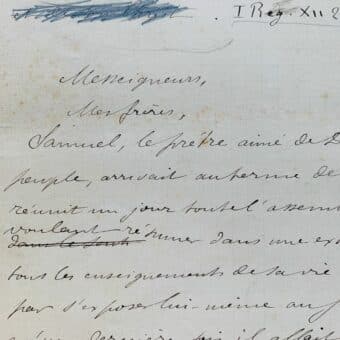 I Reg. XII 2
Messeigneurs,
Mes frères,
Samuel, le prêtre aimé de D
peuple, arrivait au terme de
réunit un jour toute l'assem
voulant résumer dans une ex
tous les enseignements de sa vie
par s'exposer lui-même au
dernière fois il allait